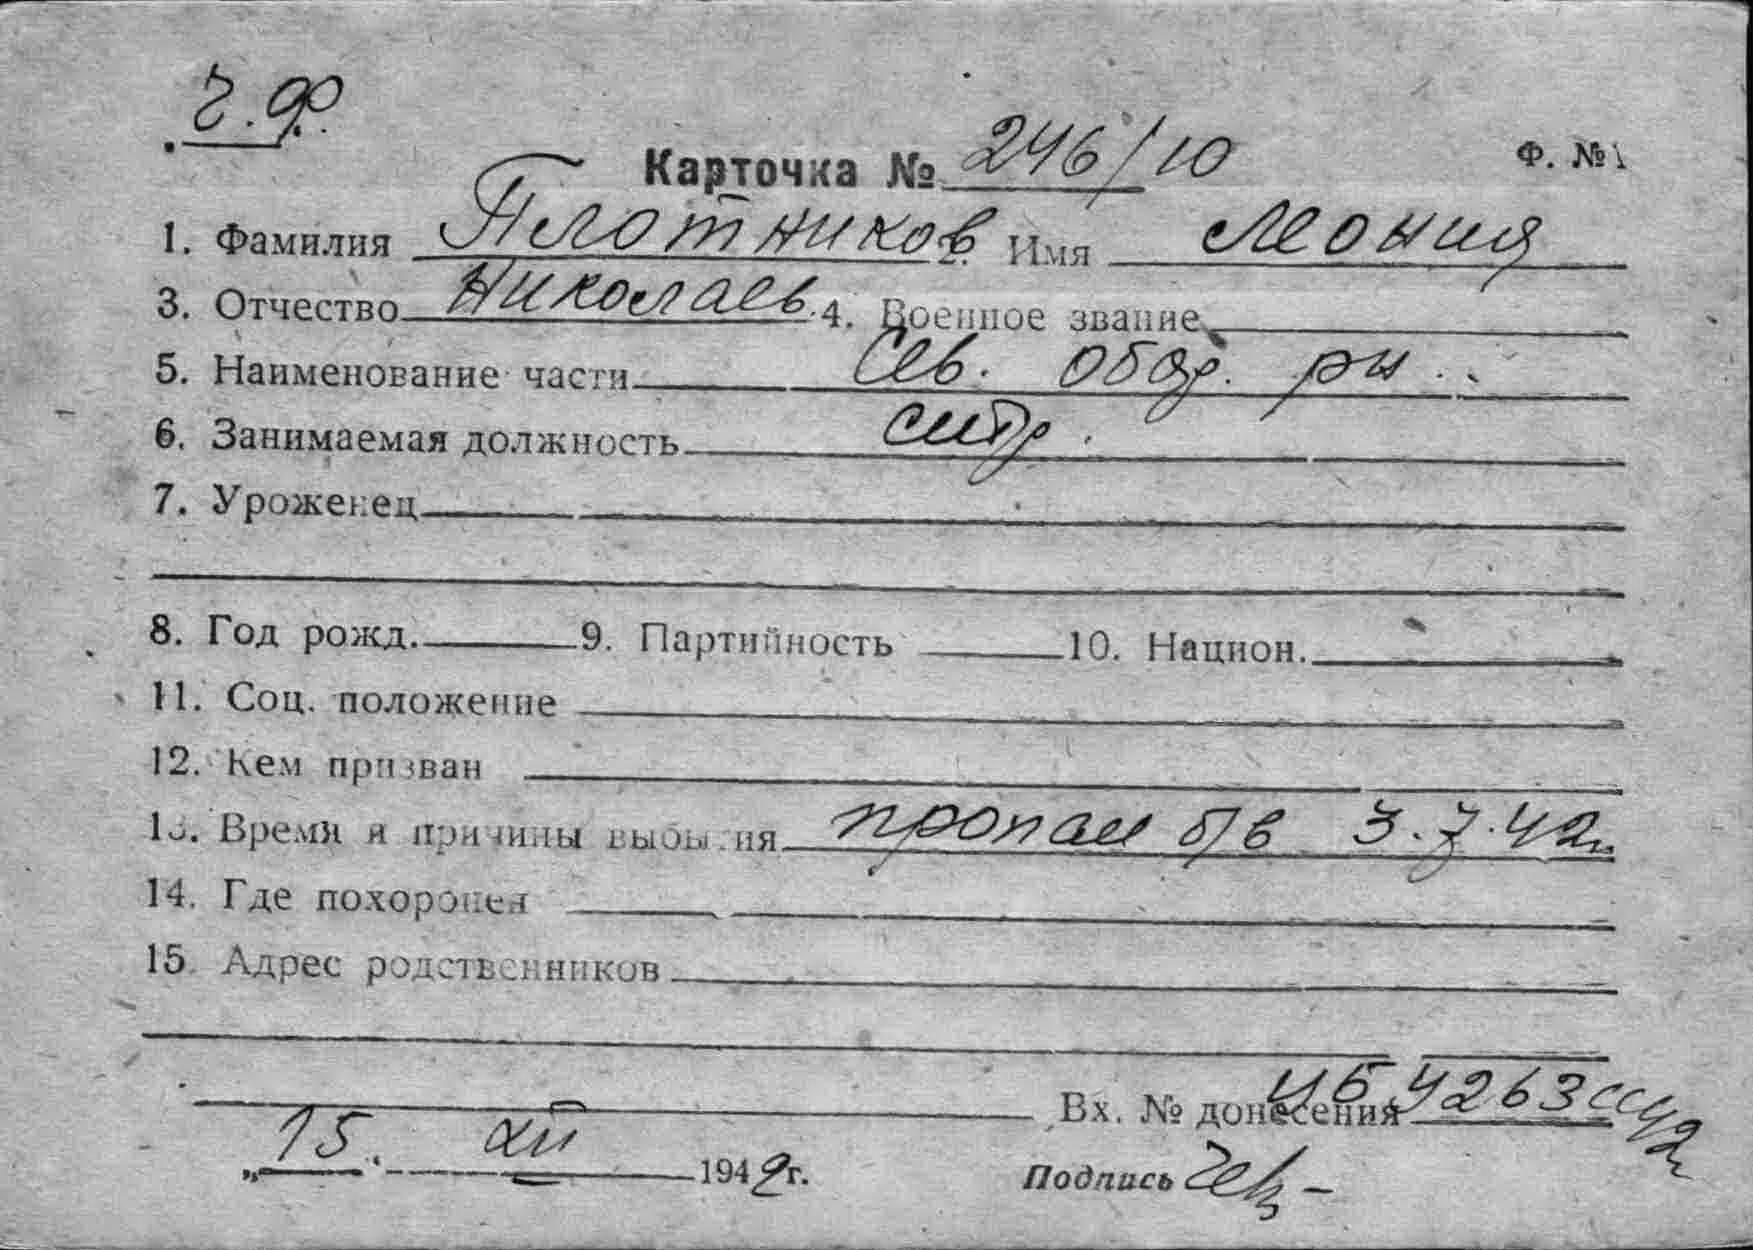 Ч.Ф.
Карточка № 246/10 Ф. №1
1. Фамилия Плотников 2. Имя Леонид
3. Отчество Николаев. 4. Военное звание
5. Наименование части Сев. обор. рн.
6. Занимаемая должность
7. Уроженец
8. Год рожд. 9. Партийность 10. Национ.
11. Соц. положение
12. Кем призван
13. Время и причины выбытия пропал б/в 3.7.42г.
14. Где похоронен
15. Адрес родственников
Вх. № донесения 4263сс 42г
„15. XII 1942г. Подпись